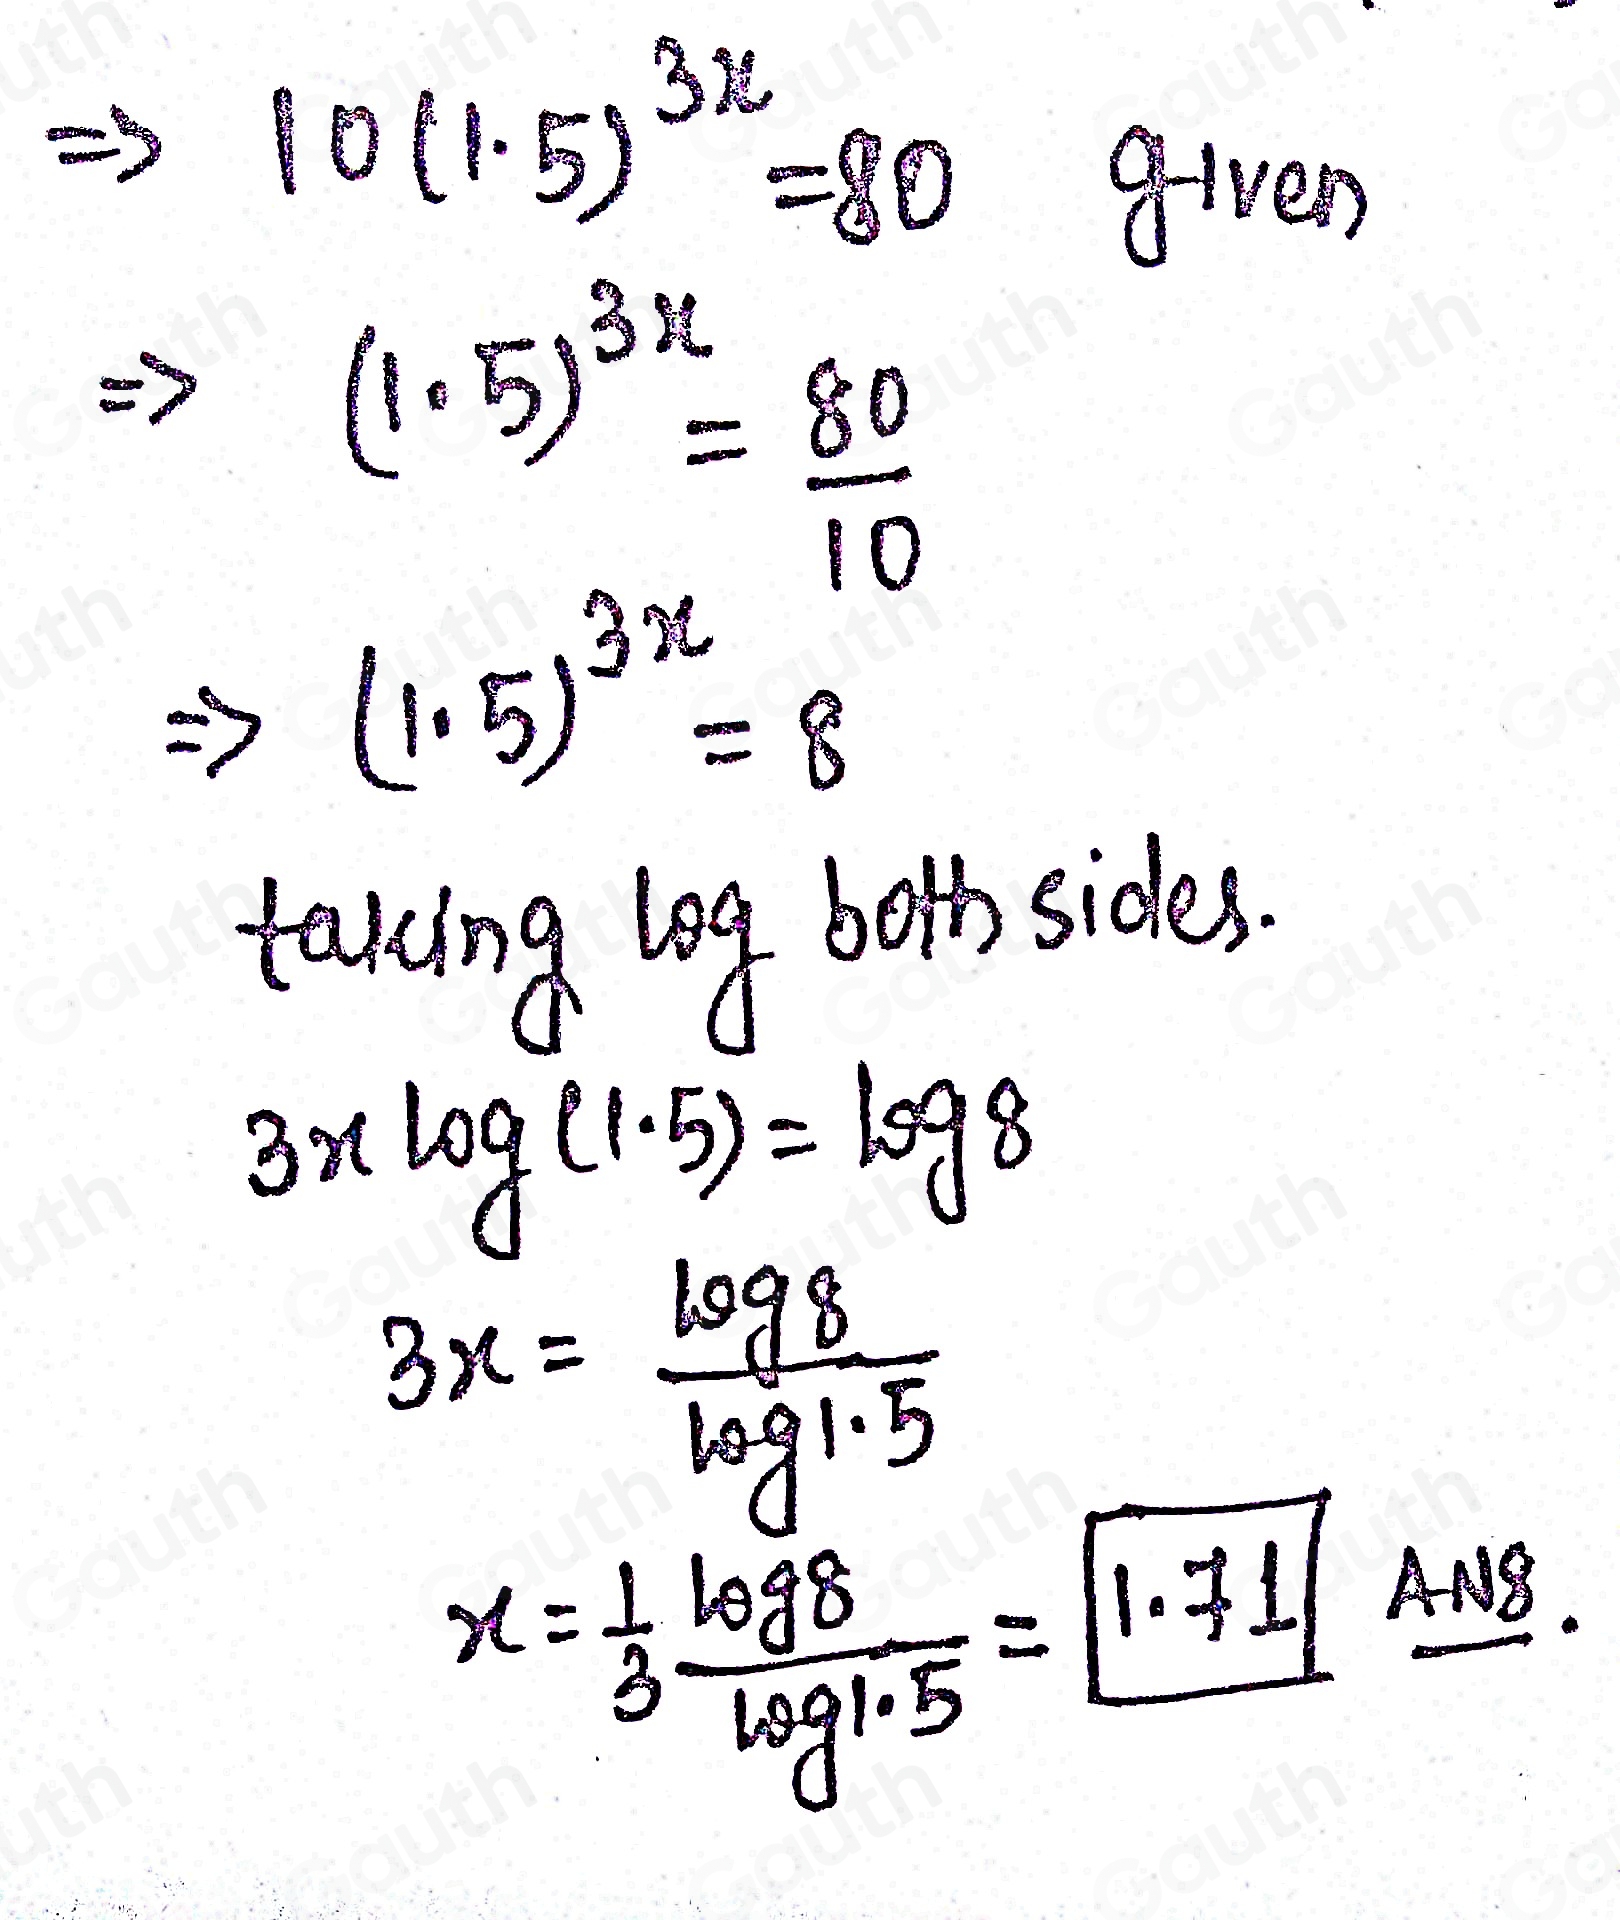 => 10(1.5)^3x = 80 given
=> (1.5)^3x = 80/10
=> (1.5)^3x = 8
taking log both sides.
3x log(1.5) = log 8
3x = log 8 / log 1.5
x = 1/3 log 8 / log 1.5 = 1.71 ANS.
Gauth